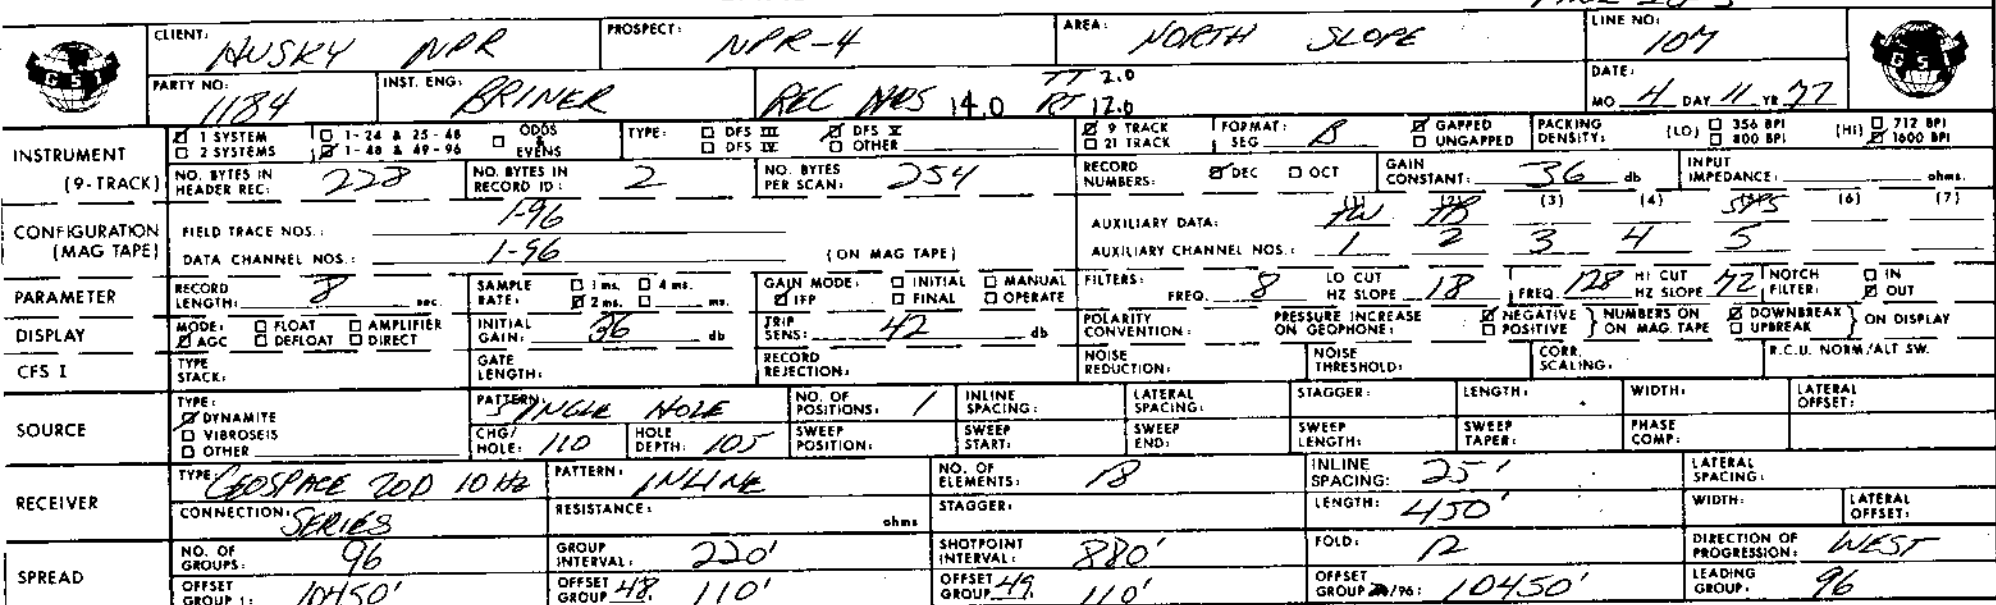 CLIENT: HUSKY NPR PROSPECT: NPR-4 AREA: NORTH SLOPE LINE NO: 107
GSI GSI
PARTY NO: 1184 INST. ENG: BRINER REC HRS 14.0 TT 2.0 RT 12.0 DATE: MO 4 DAY 11 YR 77
INSTRUMENT (9-TRACK) ☑ 1 SYSTEM ☐ 1-24 & 25-48 ☐ ODDS & EVENS TYPE: ☐ DFS III ☑ DFS V ☑ 9 TRACK FORMAT: SEG B ☑ GAPPED PACKING DENSITY: (LO) ☐ 356 BPI (HI) ☐ 712 BPI
☐ 2 SYSTEMS ☑ 1-48 & 49-96 ☐ DFS IV ☐ OTHER ☐ 21 TRACK ☐ UNGAPPED ☐ 800 BPI ☑ 1600 BPI
NO. BYTES IN HEADER REC: 228 NO. BYTES IN RECORD ID: 2 NO. BYTES PER SCAN: 254 RECORD NUMBERS: ☑ DEC ☐ OCT GAIN CONSTANT: 36 db INPUT IMPEDANCE: ohms.
CONFIGURATION (MAG TAPE) FIELD TRACE NOS.: 1-96 AUXILIARY DATA: (1) (2) (3) (4) (6) (7)
DATA CHANNEL NOS.: 1-96 (ON MAG TAPE) AUXILIARY CHANNEL NOS.: 1 2 3 4 5
PARAMETER RECORD LENGTH: 8 sec. SAMPLE RATE: ☐ 1 ms. ☐ 4 ms. ☑ 2 ms. ☐ ms. GAIN MODE: ☐ INITIAL ☐ MANUAL ☑ IFP ☐ FINAL ☐ OPERATE FILTERS: FREQ. 8 LO CUT HZ SLOPE 18 FREQ 128 HI CUT HZ SLOPE 72 NOTCH FILTER: ☐ IN ☑ OUT
DISPLAY MODE: ☐ FLOAT ☐ AMPLIFIER ☑ AGC ☐ DEFLOAT ☐ DIRECT INITIAL GAIN: 36 db TRIP SENS: 42 db POLARITY CONVENTION: PRESSURE INCREASE ON GEOPHONE: ☑ NEGATIVE ☐ POSITIVE } NUMBERS ON ON MAG. TAPE ☑ DOWNBREAK ☐ UPBREAK } ON DISPLAY
CFS I TYPE STACK: GATE LENGTH: RECORD REJECTION: NOISE REDUCTION: NOISE THRESHOLD: CORR. SCALING: R.C.U. NORM/ALT SW.
SOURCE TYPE: ☑ DYNAMITE ☐ VIBROSEIS ☐ OTHER PATTERN: SINGLE HOLE NO. OF POSITIONS: 1 INLINE SPACING: LATERAL SPACING: STAGGER: LENGTH: WIDTH: LATERAL OFFSET:
CHG/HOLE: 110 HOLE DEPTH: 105 SWEEP POSITION: SWEEP START: SWEEP END: SWEEP LENGTH: SWEEP TAPER: PHASE COMP:
RECEIVER TYPE: GEOSPACE 20D 10 Hz PATTERN: INLINE NO. OF ELEMENTS: 18 INLINE SPACING: 25' LATERAL SPACING:
CONNECTION: SERIES RESISTANCE: ohms STAGGER: LENGTH: 450' WIDTH: LATERAL OFFSET:
SPREAD NO. OF GROUPS: 96 GROUP INTERVAL: 220' SHOTPOINT INTERVAL: 880' FOLD: 12 DIRECTION OF PROGRESSION: WEST
OFFSET GROUP 1: 10450' OFFSET GROUP 48. 110' OFFSET GROUP 49. 110' OFFSET GROUP /96: 10450' LEADING GROUP: 96